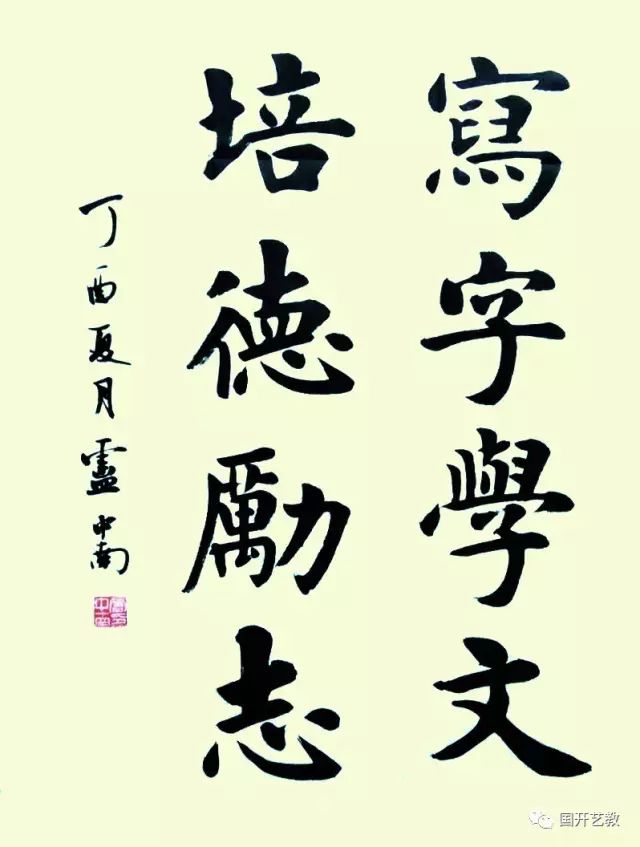 寫字學文
培德勵志
丁酉夏月盧中南
国开艺教